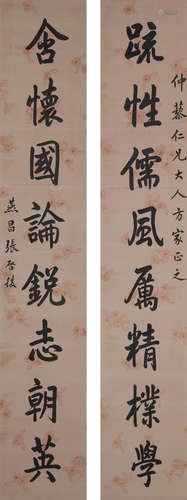 仲蓺仁兄大人方家正之
疏性儒風厲精樸學
含懷國論銳志朝英
燕昌張啓後